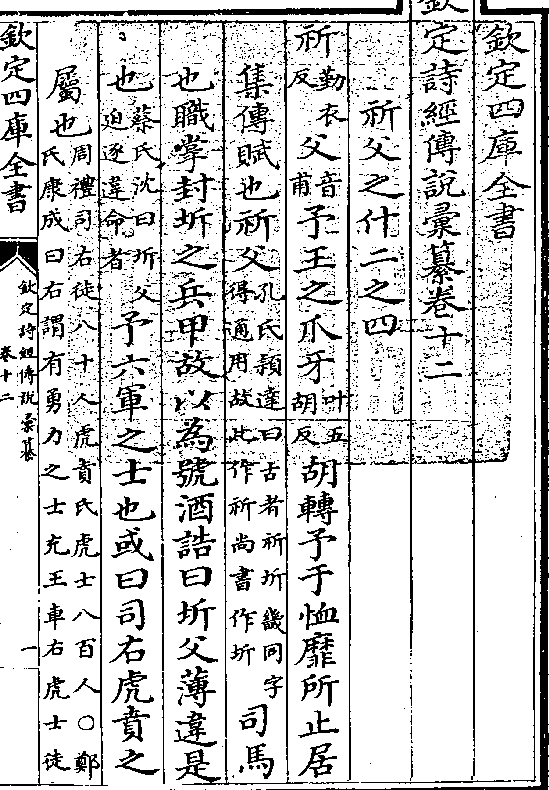 欽定四庫全書
欽定詩經傳說彙纂卷十二
祈父之什二之四
祈勤衣反父音甫予王之爪牙叶五胡反胡轉予于恤靡所止居
集傳賦也祈父孔氏穎達曰古者祈圻畿同字得通用故此作祈尚書作圻司馬
也職掌封圻之兵甲故以為號酒誥曰圻父薄違是
也蔡氏沈曰圻父迫逐違命者予六軍之士也或曰司右虎賁之
屬也周禮司右徒八十人虎賁氏虎士八百人○鄭氏康成曰右謂有勇力之士充王車右虎士徒
欽定四庫全書
欽定詩經傳說彙纂
卷十二
一